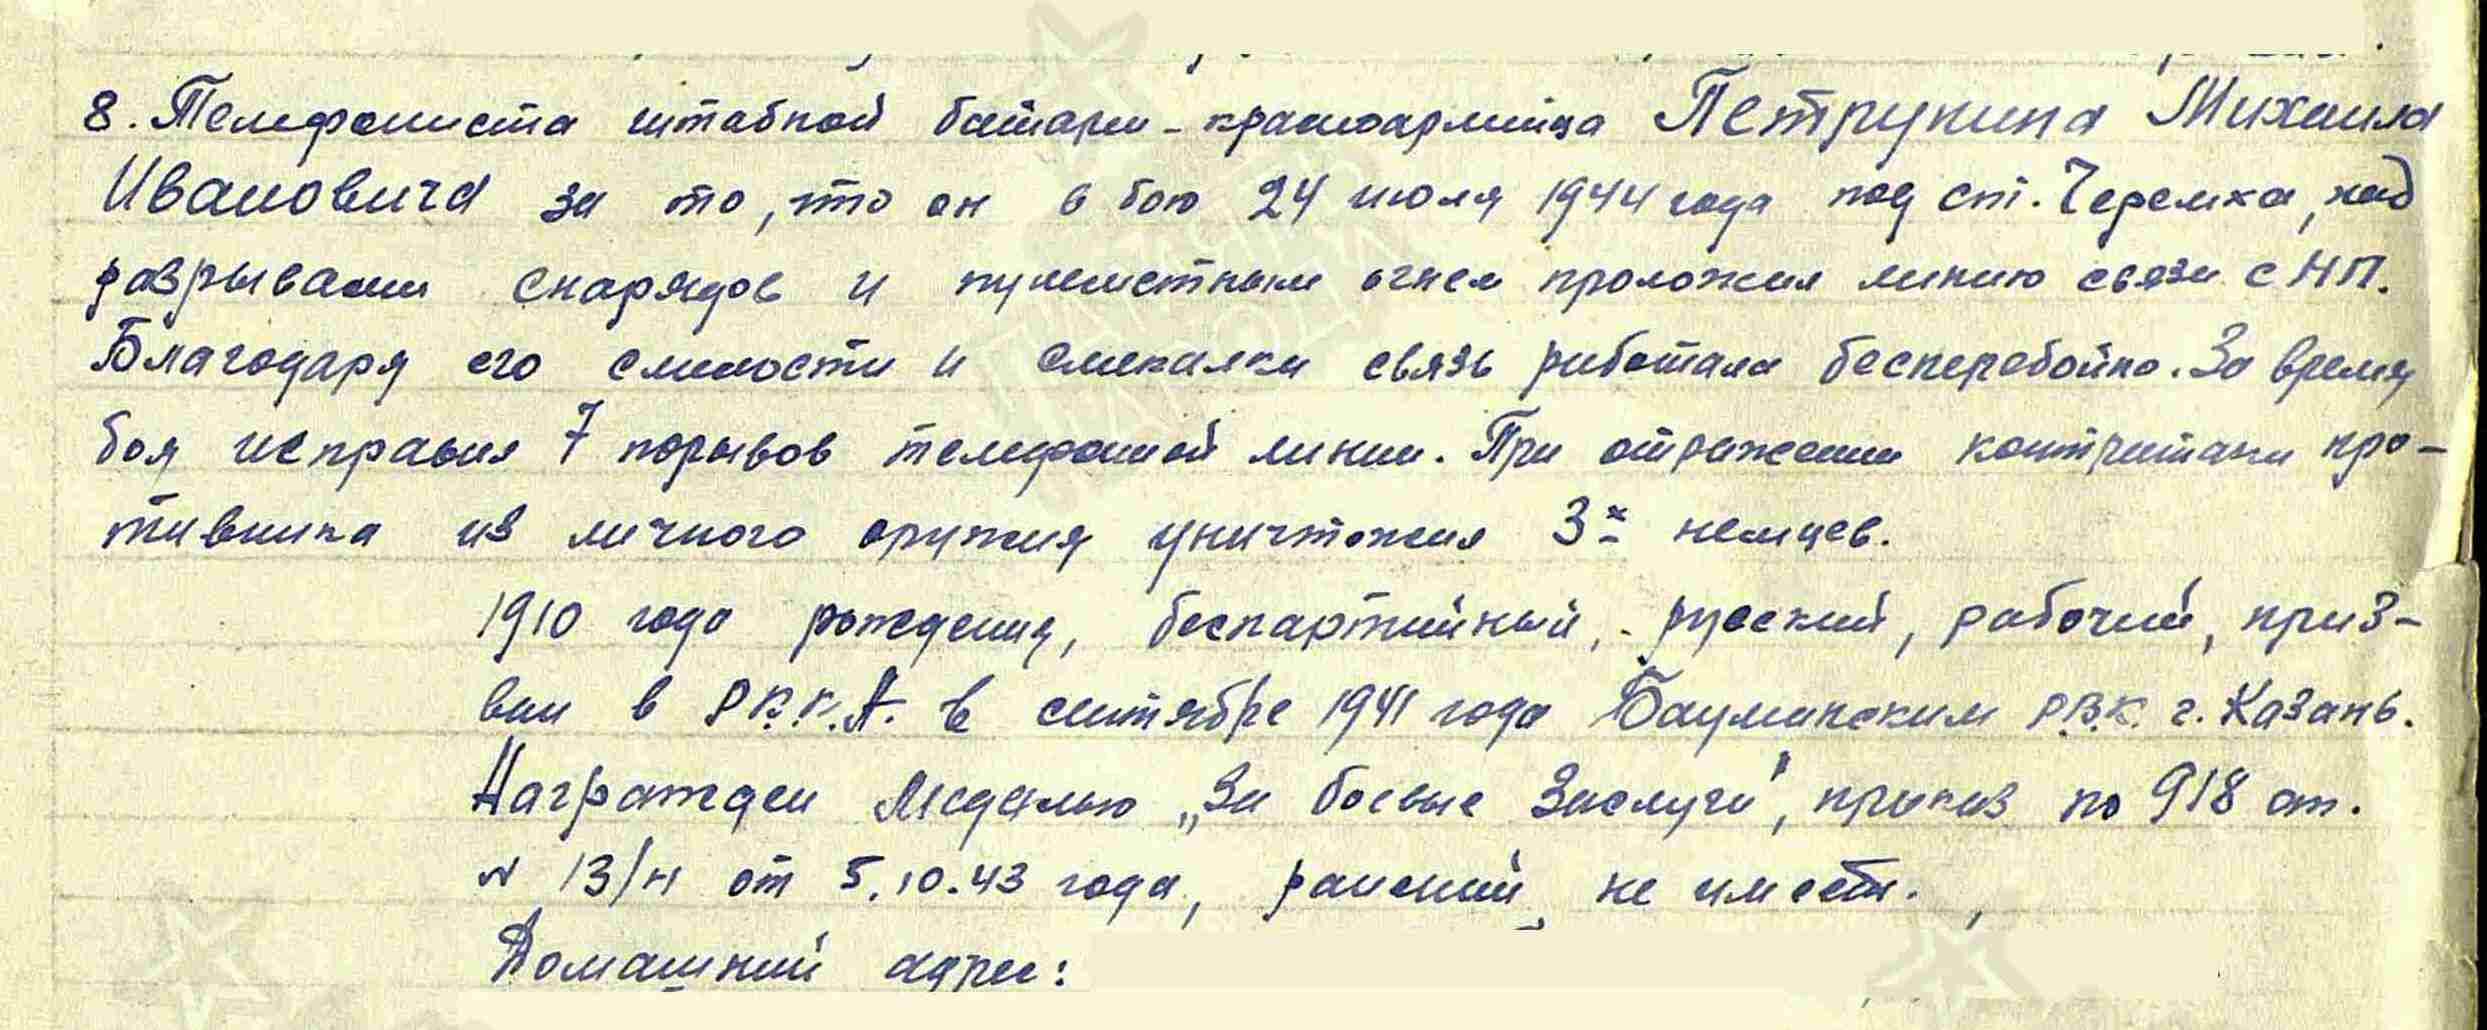 8. Телефониста штабной батареи - красноармейца Петрунина Михаила
Ивановича за то, что он в бою 24 июля 1944 года под ст. Черемха, под
разрывами снарядов и пулеметным огнем проложил линию связи с НП.
Благодаря его смелости и смекалки связь работала бесперебойно. За время
боя исправил 7 порывов телефонной линии. При отражении контратаки про-
тивника из личного оружия уничтожил 3х немцев.
1910 года рождения, беспартийный, русский, рабочий, приз-
ван в Р.К.К.А. в сентябре 1941 года Бауманским Р.В.К. г. Казань.
Награжден Медалью „За боевые Заслуги", приказ по 918 ап.
N 13/н от 5.10.43 года, ранений не имеет.
Домашний адрес: